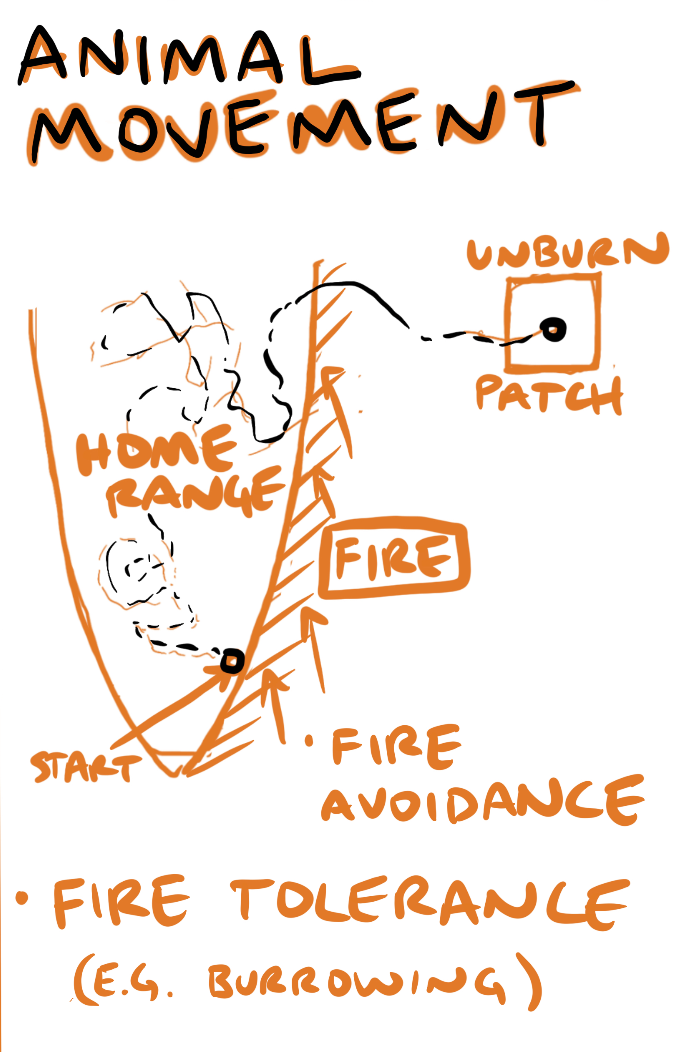 ANIMAL
MOVEMENT
UNBURN
PATCH
HOME
RANGE
FIRE
START
• FIRE
AVOIDANCE
• FIRE TOLERANCE
(E.G. BURROWING)